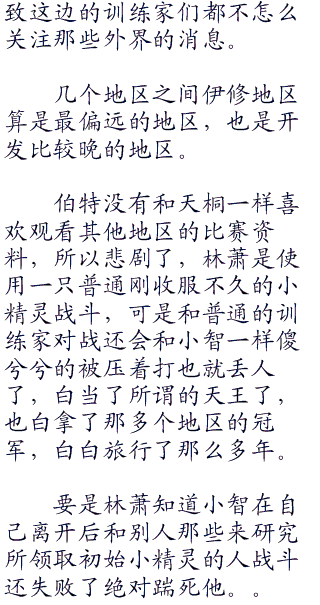 致这边的训练家们都不怎么
关注那些外界的消息。
几个地区之间伊修地区
算是最偏远的地区，也是开
发比较晚的地区。
伯特没有和天桐一样喜
欢观看其他地区的比赛资
料，所以悲剧了，林萧是使
用一只普通刚收服不久的小
精灵战斗，可是和普通的训
练家对战还会和小智一样傻
兮兮的被压着打也就丢人
了，白当了所谓的天王了，
也白拿了那多个地区的冠
军，白白旅行了那么多年。
要是林萧知道小智在自
己离开后和别人那些来研究
所领取初始小精灵的人战斗
还失败了绝对踹死他。。